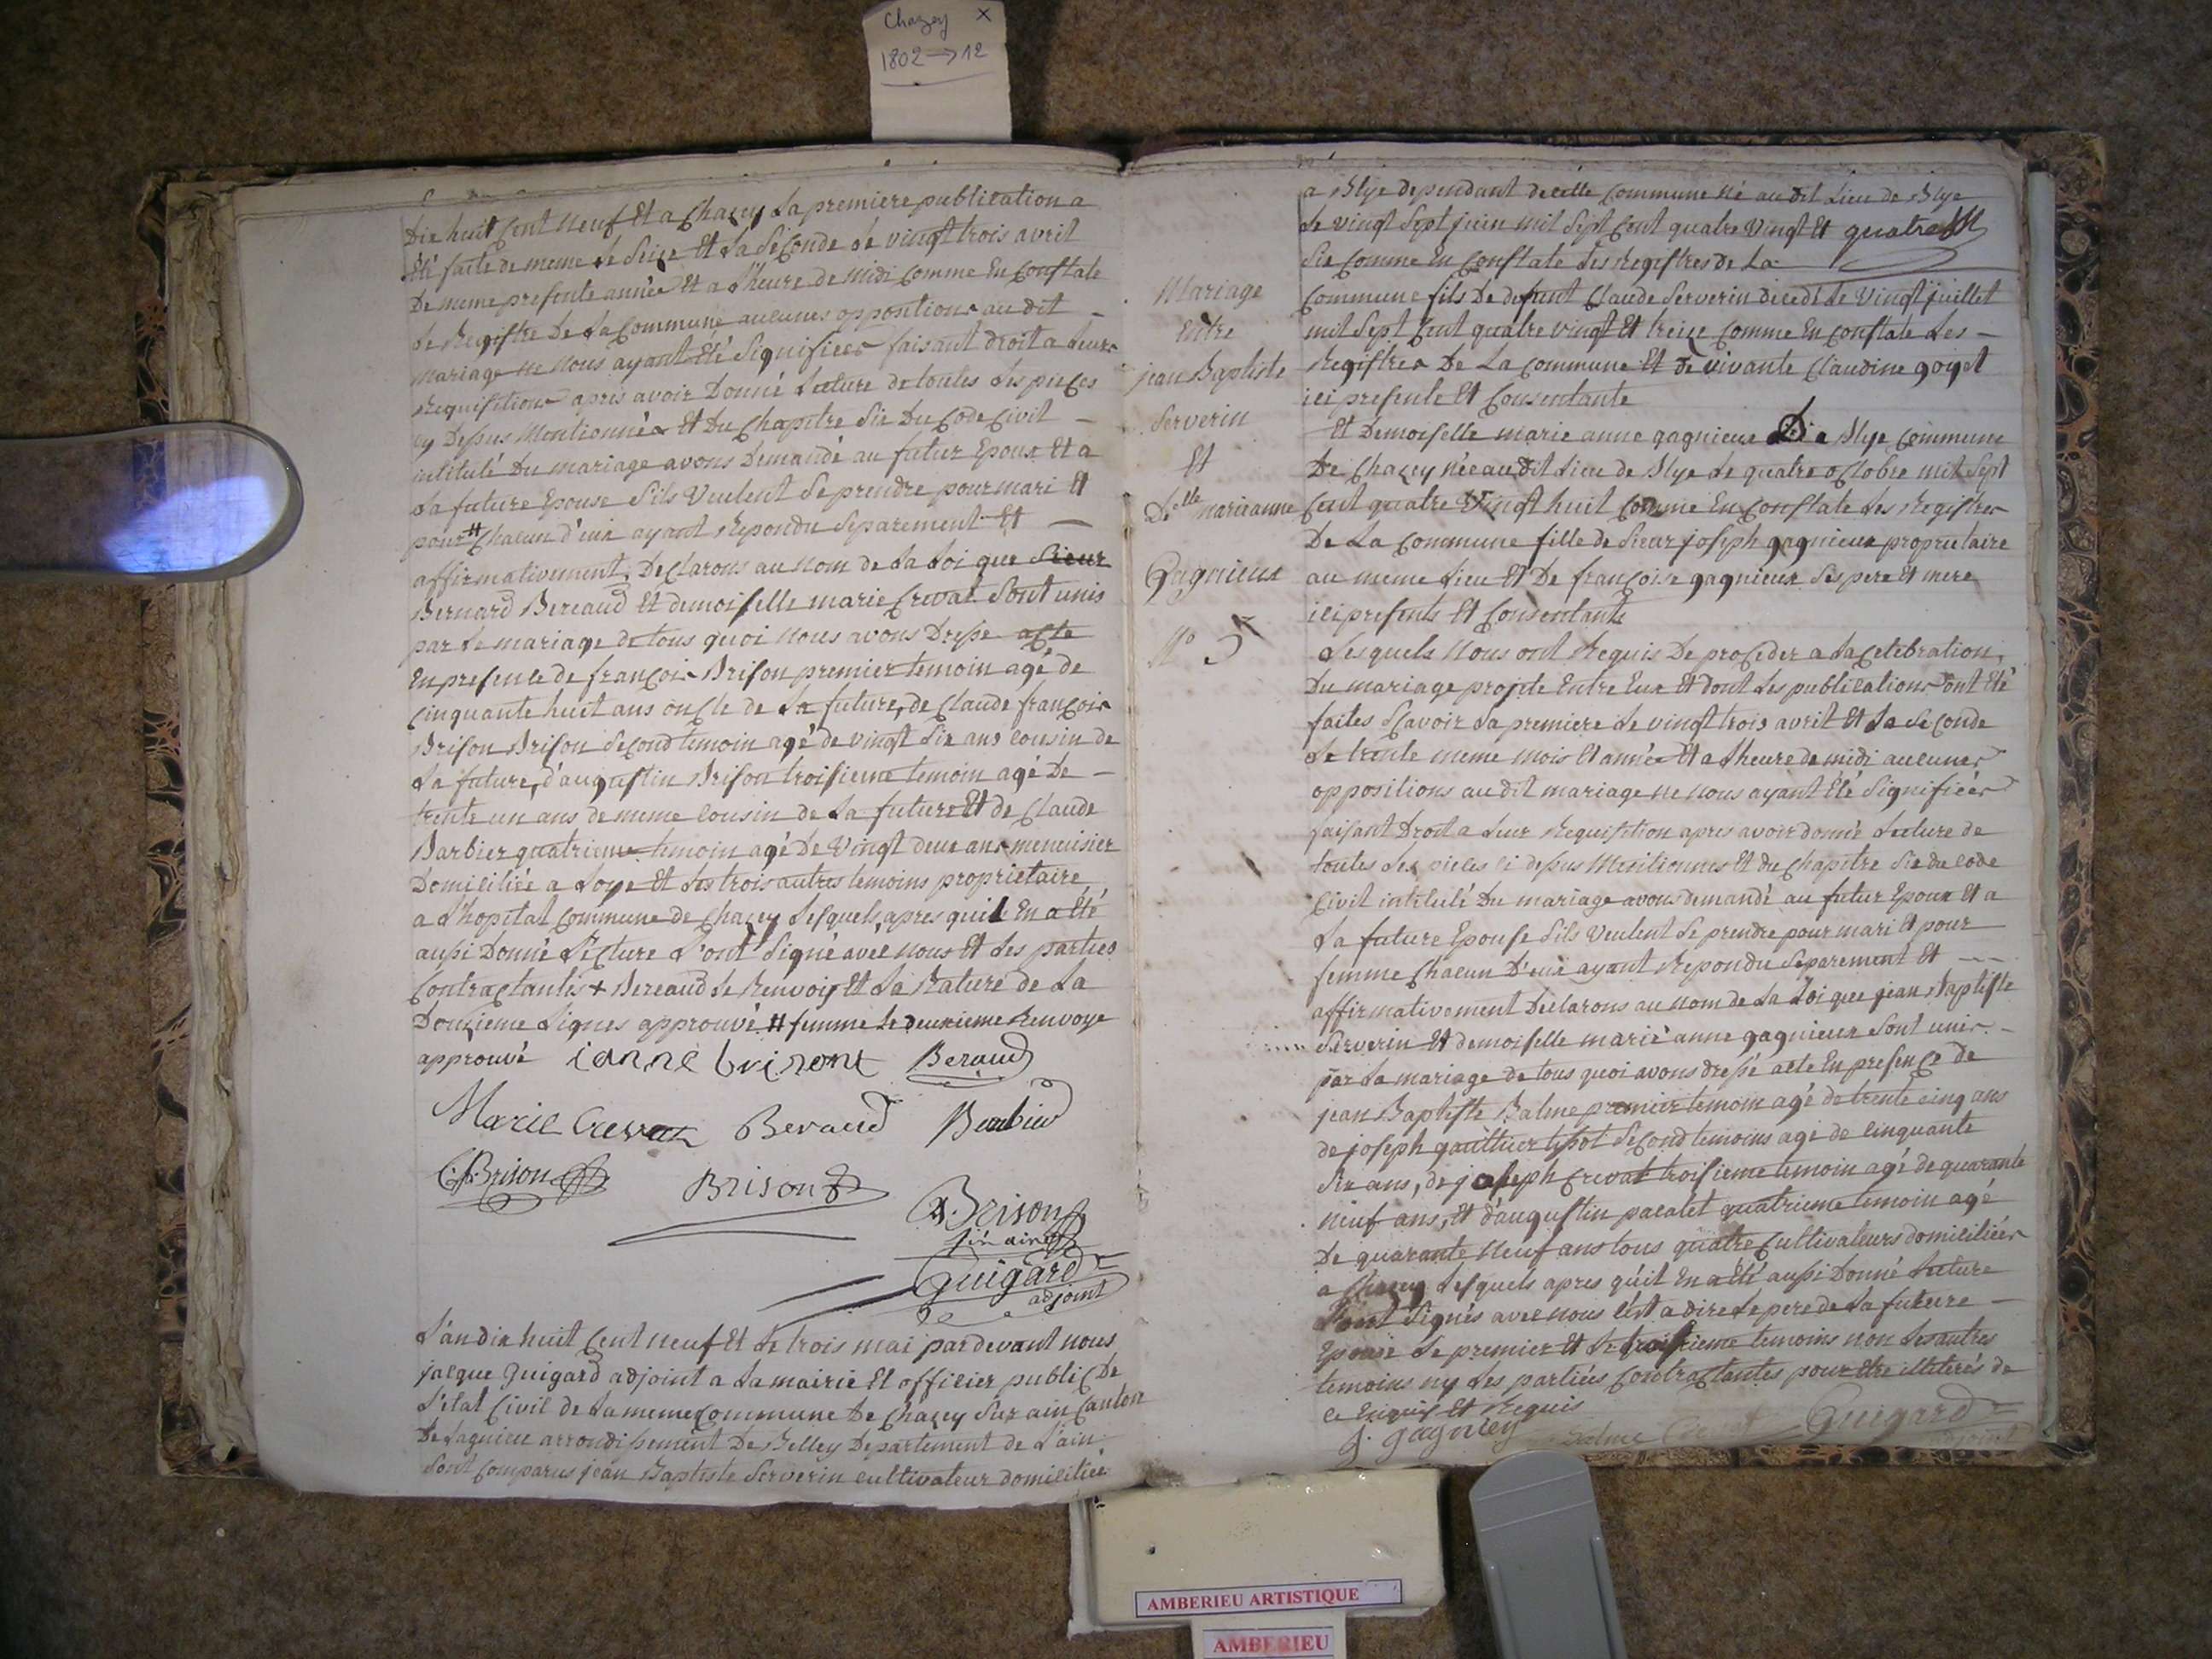 Chazey X
1802 → 12
Dix huit Cent neuf Et a Chazey La premiere publication a
Eté faite de meme Le Seize Et La Seconde Le vingt trois avril
De meme presente année Et a L'heure de midi Comme En Constate
Le Registre De La Commune aucunes oppositions au dit
mariage ne nous ayant Eté Signifiées faisant droit a Leurs
Requisitions apres avoir Donné Lecture de toutes Les pieces
cy Dessus Mentionnées Et Du Chapitre Six Du Code Civil
intitulé Du mariage avons Demandé au futur Epoux Et a
La future Epouse S'ils Veulent Se prendre pour mari Et
pour # Chacun d'eux ayant Repondu Separement Et
affirmativement, Declarons au nom de La Loi que Sieur
Bernard Bereaud Et demoiselle marie Crevat Sont unis
par Le mariage de tous quoi nous avons Dresse acte
En presence de françois Brison premier temoin agé de
Cinquante huit ans oncle de La future, de Claude françois
Brison Brison Second temoin agé de vingt Six ans cousin de
La future, d'augustin Brison troisieme temoin agé De
trente un ans de meme cousin de La future Et de Claude
Barbier quatrieme temoin agé De Vingt deux ans menuisier
Domiciliée a Loye Et Les trois autres temoins proprietaire
a L'hopital Commune de Chazey Lesquels, apres quil En a Eté
aussi Donné Lecture L'ont Signé avec nous Et Les parties
Contractantes + Bereaud Le Renvois Et La Rature de La
Douzieme Lignes approuvé # femme Le deuxieme Renvoye
approuvé ianne brisont Beraud
Marie Crevat Beraud Barbier
C.f. Brison Brison
A. Brison
Guigard
adjoint
L'an dix huit Cent neuf Et Le trois mai par devant nous
jacque Guigard adjoint a La mairie Et officier public De
L'état Civil de La meme Commune De Chazey Sur ain Canton
De Lagnieu arrondissement De Belley Departement de L'ain
Sont Comparus jean Baptiste Serverin cultivateur domiciliée
Mariage
Entre
jean Baptiste
Serverin
Et
Delle marie anne
Gagnieux
No 5
a Blye dependant de cette Commune né au dit Lieu de Blye
Le vingt Sept juin mil Sept Cent quatre Vingt Et quatre
Six Comme En Constate Les Registres de La
Commune fils De defunt Claude Serverin decedé Le Vingt juillet
mil Sept Cent quatre vingt Et treize Comme En Constate Les
Registres De La Commune Et de vivante Claudine goyet
ici presente Et Consentante
Et Demoiselle marie anne gagnieux De Blye Commune
De Chazey née au Dit Lieu de Blye Le quatre octobre mil Sept
Cent quatre Vingt huit Comme En Constate Les Registres
De La Commune fille de Sieur joseph gagnieux proprietaire
au meme Lieu Et De françoise gagnieux Ses pere Et mere
ici presents Et Consentants
Lesquels Nous ont Requis De proceder a La Celebration
Du mariage projeté Entre Eux Et dont Les publications ont Eté
faites Scavoir La premiere Le vingt trois avril Et La Seconde
Le trente meme mois Et année Et a L'heure de midi aucunes
oppositions au dit mariage ne nous ayant Eté Signifiées
faisant Droit a Leur Requisition apres avoir donné Lecture de
toutes Les pieces ci dessus Mentionnes Et du Chapitre Six du code
Civil intitulé Du mariage avons demandé au futur Epoux Et a
La future Epouse S'ils Veulent Se prendre pour mari Et pour
femme Chacun D'eux ayant Repondu Separement Et
affirmativement Declarons au nom de La Loi que jean Baptiste
Serverin Et demoiselle marie anne gagnieux Sont unis
par La mariage de tous quoi avons dressé acte En presence de
jean Baptiste Balme premier temoin agé de trente cinq ans
de joseph gauthier tissot Second temoins agé de cinquante
Six ans, de joseph Crevat troisieme temoin agé de quarante
neuf ans, Et d'augustin pacalet quatrieme temoin agé
De quarante neuf ans tous quatre Cultivateurs domiciliées
a Chazey Lesquels apres qu'il En a Eté aussi Donné Lecture
L'ont Signés avec nous C'est a dire Le pere de La future
Epouse Le premier Et Le troisieme temoins non Les autres
temoins ny Les parties Contractantes pour Etre illiterés de
Ce Enquis Et Requis
J. gagnieu Balme Crevat Guigard
adjoint
AMBERIEU ARTISTIQUE
AMBERIEU